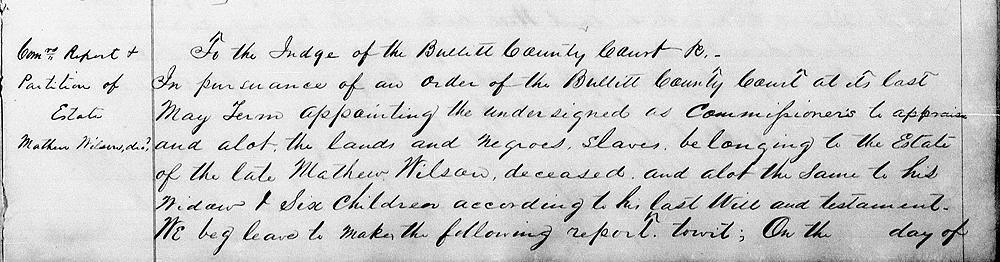 Comrs Report &
Partition of
Estate
Mathew Wilson, dec'd.
To the Judge of the Bullitt County Court &c.-
In pursuance of an order of the Bullitt County Court at its last
May Term appointing the undersigned as Commissioners to appraise
and alot, the lands and Negroes, Slaves, belonging to the Estate
of the late Mathew Wilson, deceased, and alot the same to his
Widow & Six Children according to his last Will and testament.
WE beg leave to make the following report. towit; On the day of